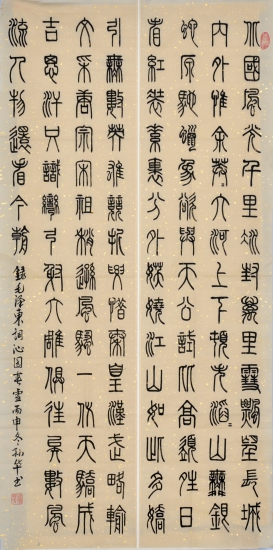 北國風光千里冰封萬里雪飄望長城
内外惟余莽〻大河上下頓失滔〻山舞銀
蛇原馳蠟象欲與天公試比高須晴日
看紅裝素裹分外妖嬈江山如此多嬌
引無數英雄競折腰惜秦皇漢武略輸
文采唐宗宋祖稍遜風騷一代天驕成
吉思汗只識彎弓射大雕俱往矣數風
流人物還看今朝
錄毛澤東詞沁園春雪丙申冬孙华书